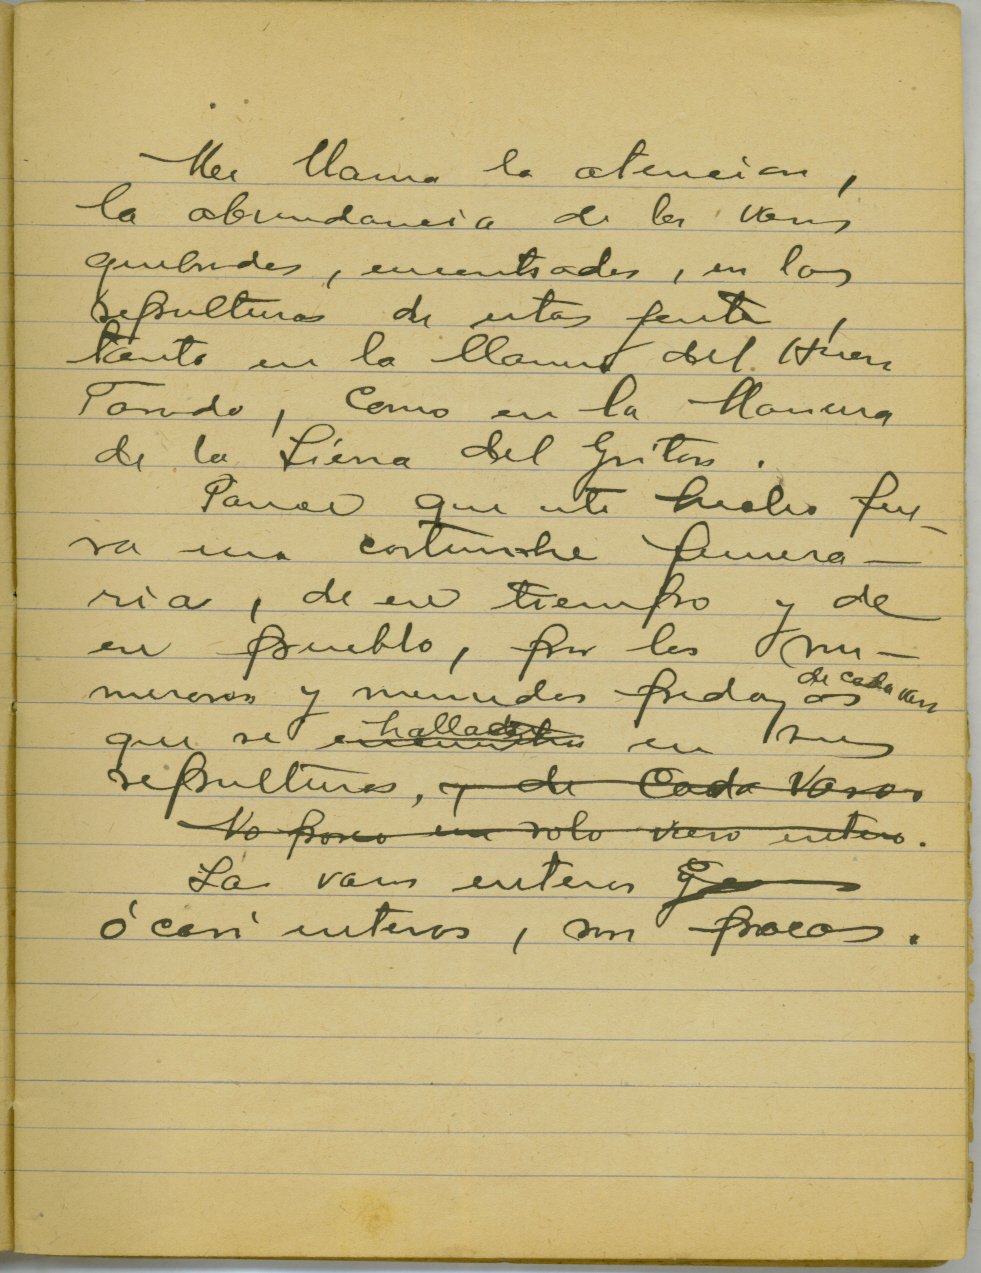 Me llama la atencion,
la abundancia de los vasos
quebrados, encontrados, en las
sepulturas de estas gente,
tanto en la llanura del
como en la llanura
de la Sierra del Gritos.
Parece que este hecho fue-
ra una costumbre funera-
ria, de ese tiempo y de
ese pueblo, por los nu-
merosos y menudos pedazos de cada vaso
que se hallados en sus
sepulturas, y de Cada Vasos
No poseo un solo vaso entero.
Los vasos enteros
ó casi enteros, son pocos.